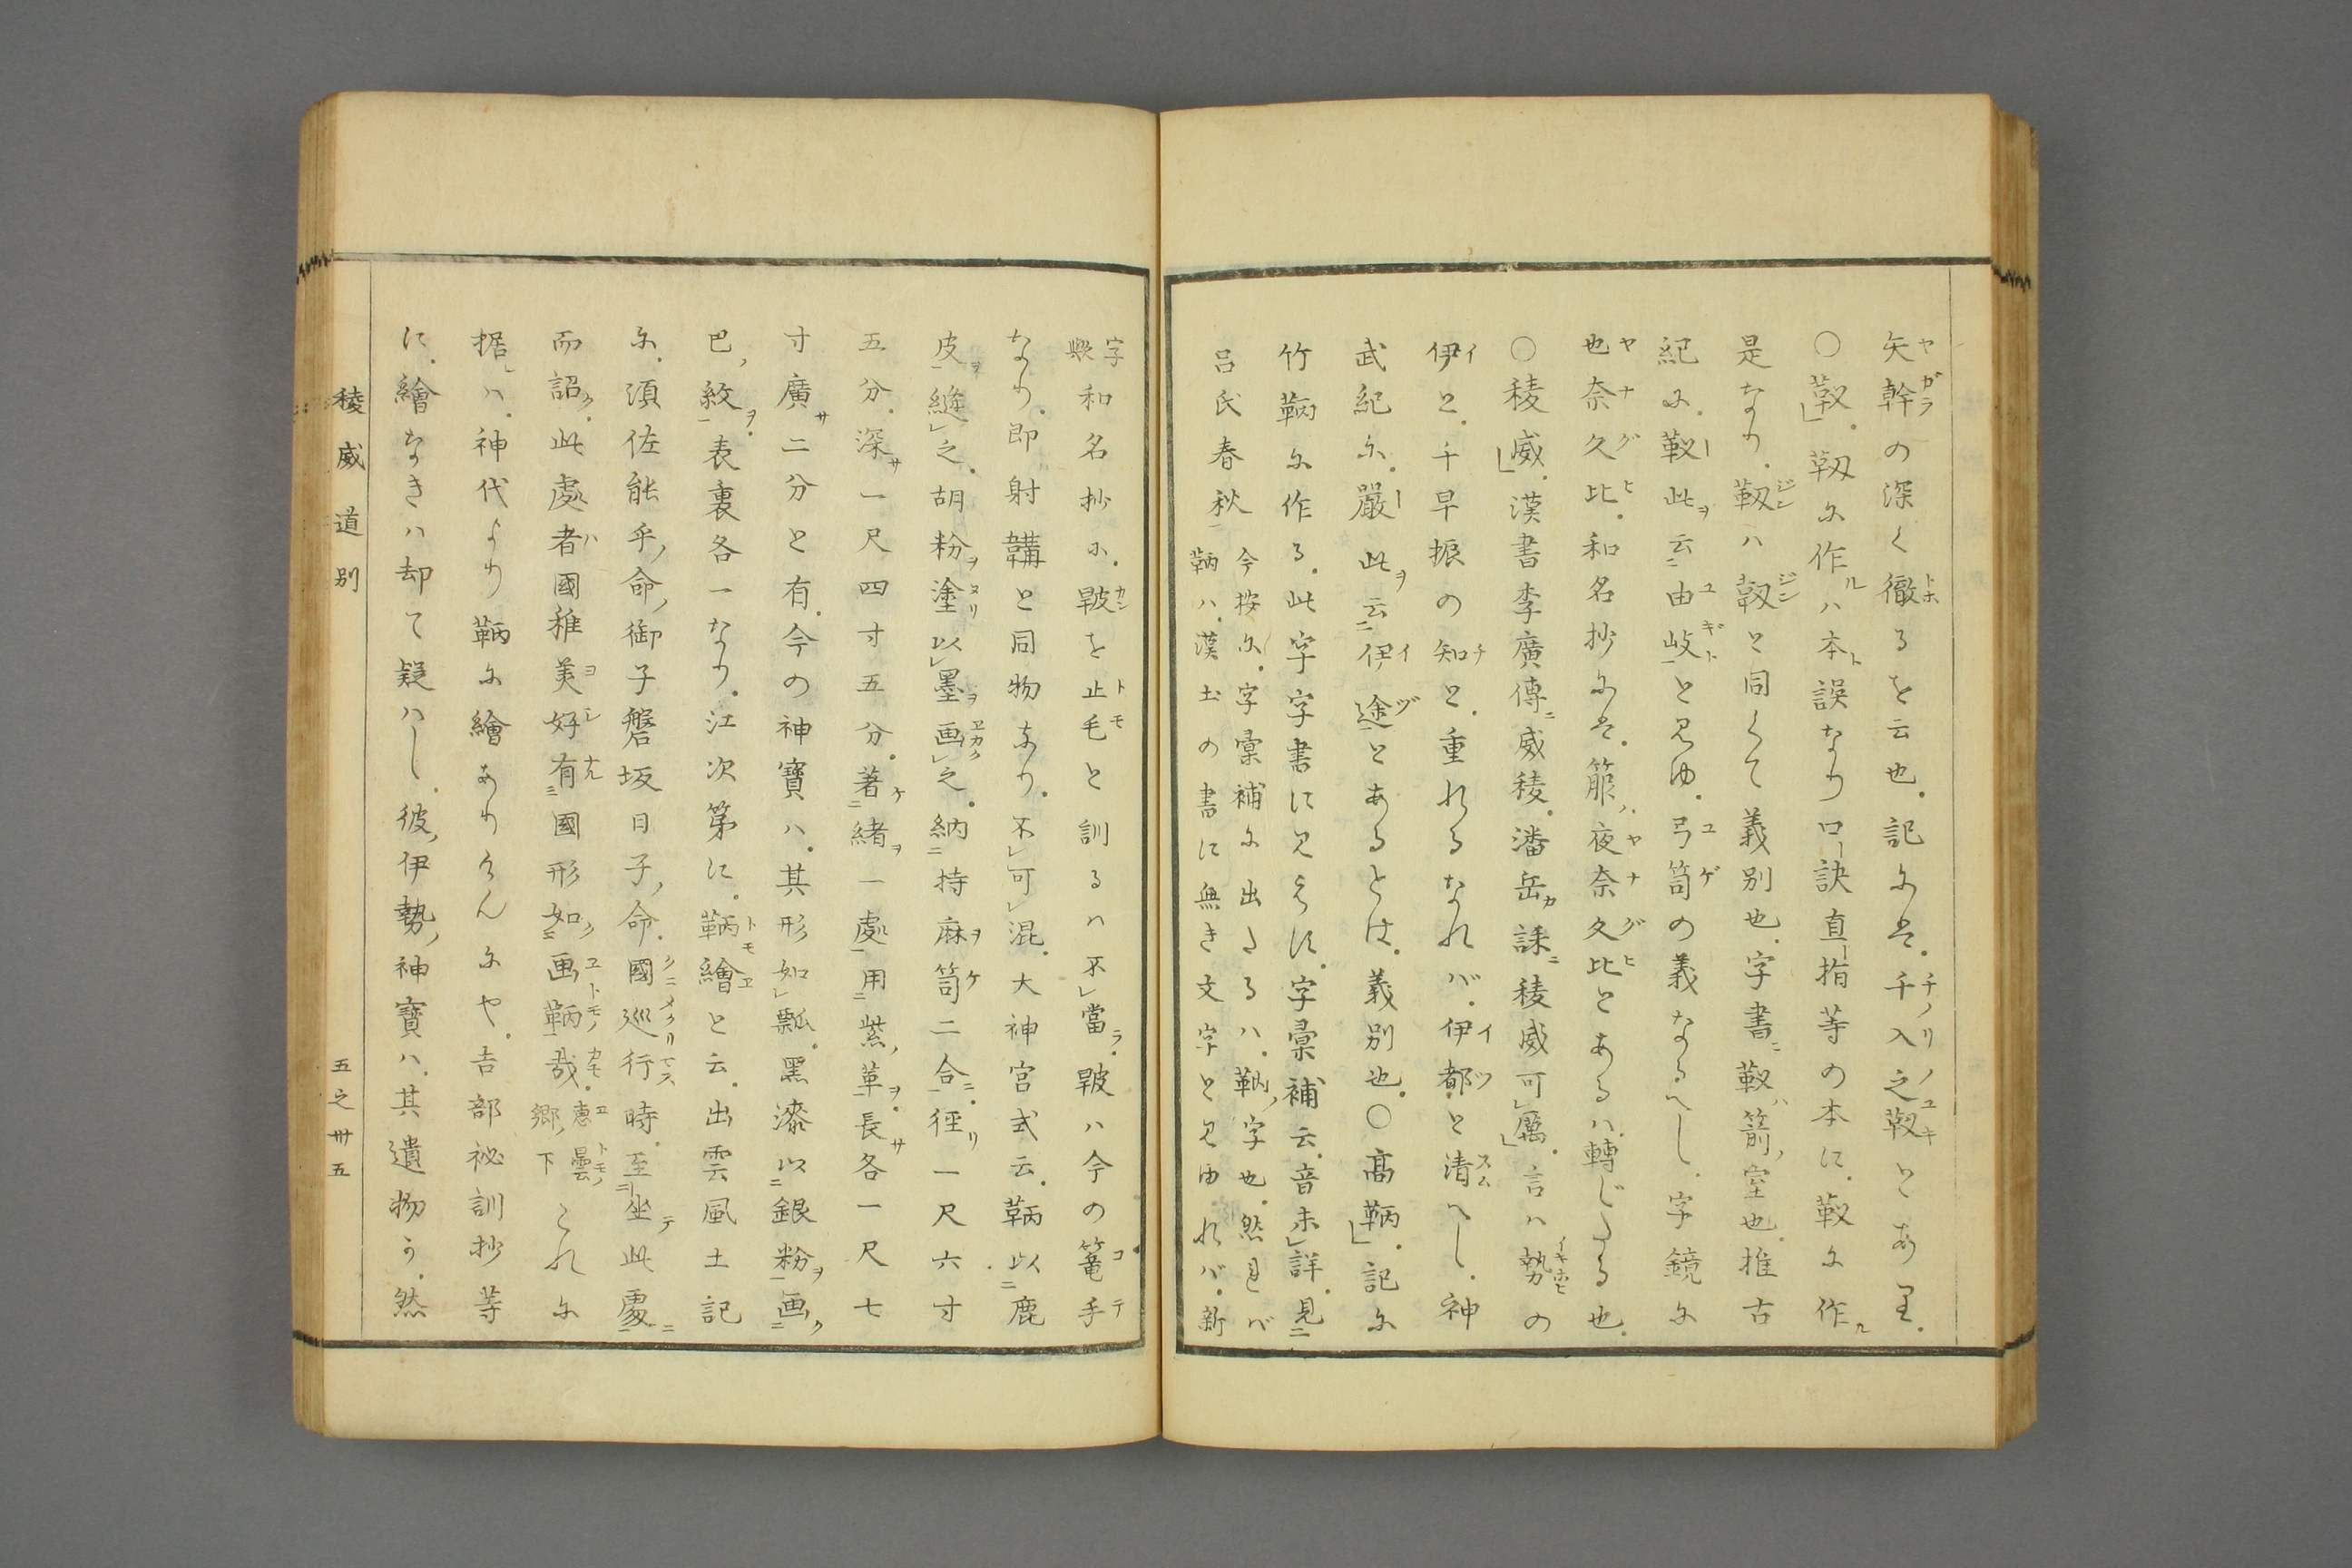 矢幹の深く徹るを云也。記には。千入之靫とあり。
○靫」。靱に作ルハ本ト誤なり口訣直指等の本に。靫に作ル
是なり。靱ハ韌と同くて義別也。字書ニ靫ハ箭ノ室也。推古
紀に。靫此ヲ云ニ由岐一と見ゆ。弓笥の義なるへし。字鏡に
也奈久比。和名抄には。箙ハ夜奈久比とあるハ。轉じたる也。
○稜威」。漢書李廣傳ニ威稜。潘岳カ誄ニ稜威可レ厲。言ハ勢の
伊と。千早振の知と。重れるなれバ。伊都と清へし。神
武紀に。嚴此ヲ云ニ伊途一とあるとは。義別也。○高鞆」。記に
竹鞆に作る。此字字書に見えず。字彙補云。音未レ詳。見ニ
呂氏春秋一
今按に。字彙補に出たるハ。鞆ノ字也。然れバ
鞆ハ。漢土の書に無き文字と見ゆれバ。新
字
歟
和名抄に。皸を止毛と訓るハ不レ當ラ。皸ハ今の篭手
なり。即射韝と同物なり。不レ可レ混。大神宮式云。鞆以ニ鹿
皮一縫レ之。胡粉ヲ塗以レ墨ヲ画レ之。納ニ持麻笥二合一。徑リ一尺六寸
五分。深サ一尺四寸五分。著ケ緒ヲ一處一用ニ紫ノ革一ヲ。長サ各一尺七
寸廣サ二分と有。今の神寶ハ。其形如レ瓢。黑漆以ニ銀粉一ヲ画ク
巴ノ紋一ヲ。表裏各一なり。江次第に。鞆繪と云。出雲風土記
に。須佐能乎ノ命ノ御子磐坂日子ノ命。國巡行時。至ニ坐テ此處一ニ
而詔ク。此處者ハ國稚美好有ニ國形如ク画鞆一哉。
惠曇ノ
郷ノ下
これに
據レハ。神代より鞆に繪ありけんにや。吉部祕訓抄等
に。繪なきハ却て疑ハし。彼ノ伊勢ノ神寶ハ。其遺物か。然
稜威道別
五之卅五